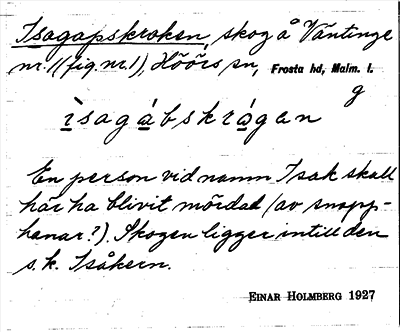 Isagapskroken, skog å Väntinge
nr. 1 (fig. nr. 1), Höörs sn, Frosta hd, Malm. l.
g
ìsagábskrágan
En person vid namn Isak skall
här ha blivit mördad (av snapp-
hanar?). Skogen ligger intill den
s. k. Isåkern.
EINAR HOLMBERG 1927